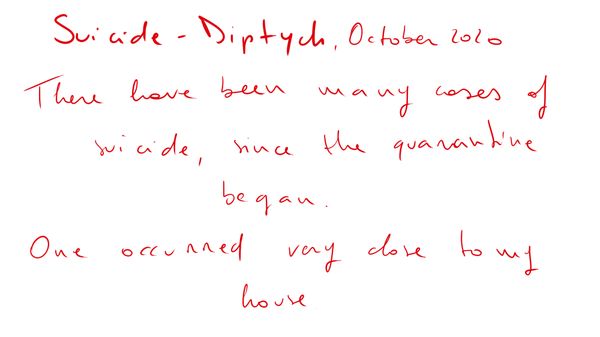 Suicide - Diptych, October 2020
There have been many cases of
suicide, since the quarantine
began.
One occurred very close to my
house